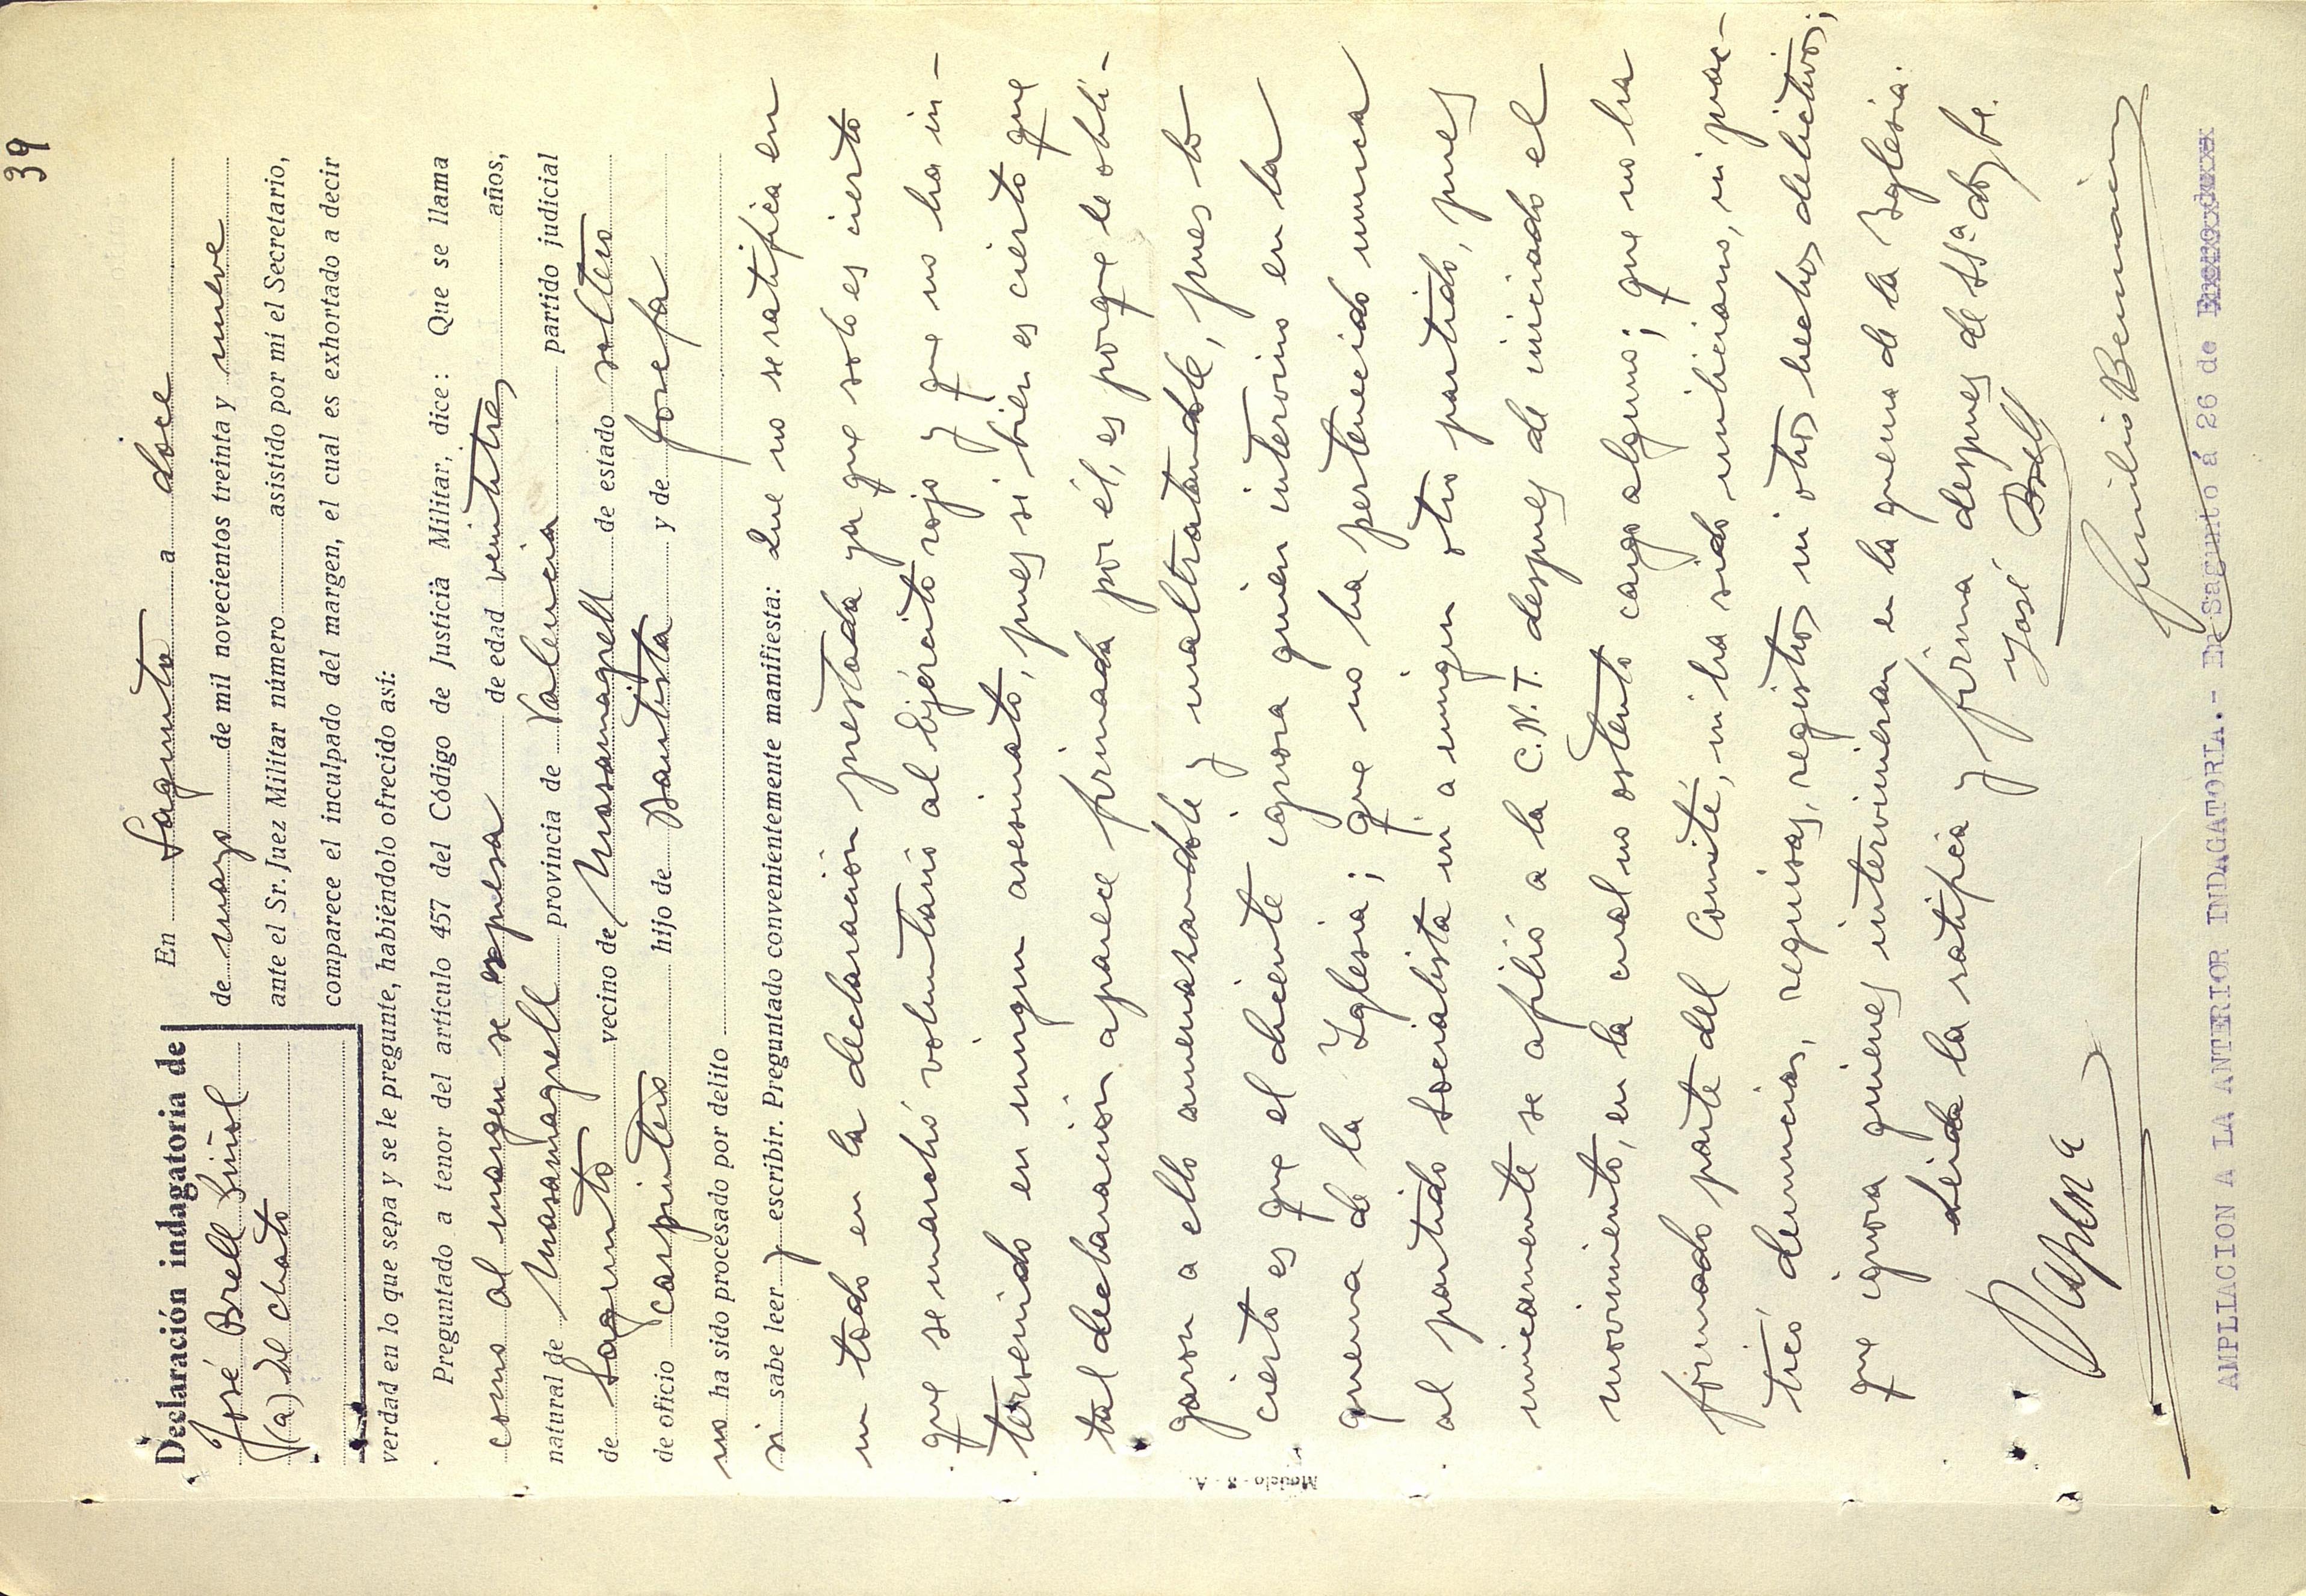 39
Declaración indagatoria de
José Brell Piñol
(a) de chato
En Sagunto a doce
de mayo de mil novecientos treinta y nueve
ante el Sr. Juez Militar número asistido por mí el Secretario,
comparece el inculpado del margen, el cual es exhortado a decir
verdad en lo que sepa y se le pregunte, habiéndolo ofrecido así:
Preguntado a tenor del artículo 457 del Código de Justicia Militar, dice: Que se llama
como al margen se expresa de edad veintitres años,
natural de Masamagrell provincia de Valencia partido judicial
de Sagunto vecino de Masamagrell de estado soltero
de oficio carpintero hijo de Bautista y de Josefa
no ha sido procesado por delito
si sabe leer y escribir. Preguntado convenientemente manifiesta: Que no se ratifica en
un todo en la declaración prestada ya que solo es cierto
que se marchó voluntario al Ejército rojo y que no ha in-
tervenido en ningun asesinato, pues si bien es cierto que
tal declaración aparece firmada por él, es porque le obli-
garon a ello amenazandole y maltratandole, pues lo
cierto es que el diciente ignora quien intervino en la
quema de la Iglesia; que no ha pertenecido nunca
al partido socialista ni a ningun otro partido, pues
unicamente se afilió a la C.N.T. despues de iniciado el
movimiento, en la cual no ostentó cargo alguno; que no ha
formado parte del Comité, ni ha sido miliciano, ni prac-
ticó denuncias, requisas, registros ni otros hechos delictivos;
que ignora quienes intervinieran en la quema de la Iglesia.
Leida la ratifica y firma despues de SSª doy fe.
José Brell
Emilio Bermain
AMPLIACION A LA ANTERIOR INDAGATORIA.- En Sagunto á 26 de